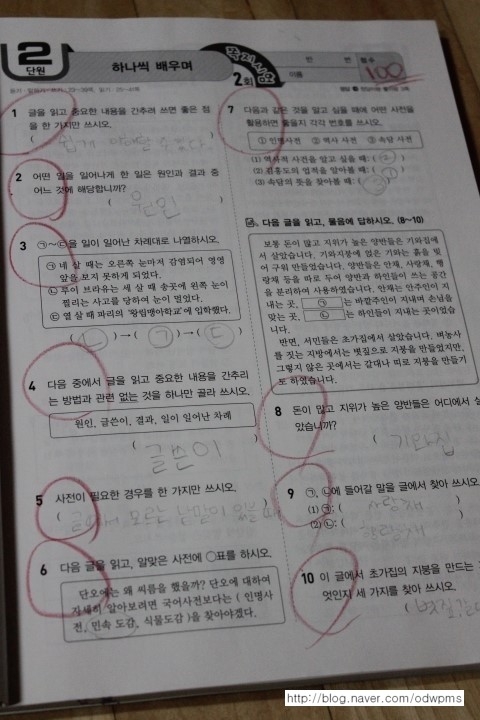 2
단원
하나씩 배우며
쪽지시험
2회
이름
반 번
점수
100
1 글을 읽고 중요한 내용을 간추려 쓰면 좋은 점
을 한 가지만 쓰시오.
2 어떤 일을 일어나게 한 일은 원인과 결과 중
어느 것에 해당합니까?
( 원인 )
3 ㉠~㉢을 일이 일어난 차례대로 나열하시오.
㉠ 네 살 때는 오른쪽 눈마저 감염되어 영영
앞을 보지 못하게 되었다.
㉡ 루이 브라유는 세 살 때 송곳에 왼쪽 눈이
찔리는 사고를 당하여 눈이 멀었다.
㉢ 열 살 때 파리의 '왕립맹아학교'에 입학했다.
( ㉡ ) → ( ㉠ ) → ( ㉢ )
4 다음 중에서 글을 읽고 중요한 내용을 간추리
는 방법과 관련 없는 것을 하나만 골라 쓰시오.
원인, 글쓴이, 결과, 일이 일어난 차례
( 글쓴이 )
5 사전이 필요한 경우를 한 가지만 쓰시오.
( 글에서 모르는 낱말이 있을 때
6 다음 글을 읽고, 알맞은 사전에 ○표를 하시오.
단오에는 왜 씨름을 했을까? 단오에 대하여
자세히 알아보려면 국어사전보다는 ( 인명사
전, 민속 도감, 식물도감 )을 찾아야겠다.
7 다음과 같은 것을 알고 싶을 때에 어떤 사전을
활용하면 좋을지 각각 번호를 쓰시오.
① 인명사전 ② 역사 사전 ③ 속담 사전
(1) 역사적 사건을 알고 싶을 때: ( ② )
(2) 김홍도의 업적을 알아볼 때: ( ① )
(3) 속담의 뜻을 찾아볼 때: ( ③ )
다음 글을 읽고, 물음에 답하시오. (8~10)
보통 돈이 많고 지위가 높은 양반들은 기와집에
서 살았습니다. 기와지붕에 얹은 기와는 흙을 빚
어 구워 만들었습니다. 양반들은 안채, 사랑채, 행
랑채 등을 따로 두어 양반과 하인들이 쓰는 공간
을 분리하여 사용하였습니다. 안채는 안주인이 지
내는 곳, ㉠ 는 바깥주인이 지내며 손님을
맞는 곳, ㉡ 는 하인들이 지내는 곳이었습
니다.
반면, 서민들은 초가집에서 살았습니다. 벼농사
를 짓는 지방에서는 볏짚으로 지붕을 만들었지만,
그렇지 않은 곳에서는 갈대나 띠로 지붕을 만들기
도 하였습니다.
8 돈이 많고 지위가 높은 양반들은 어디에서 살
았습니까?
( 기와집
9 ㉠, ㉡에 들어갈 말을 글에서 찾아 쓰시오.
(1) ㉠: ( 사랑채
(2) ㉡: ( 행랑채
10 이 글에서 초가집의 지붕을 만드는
엇인지 세 가지를 찾아 쓰시오.
( 볏짚, 갈대
http://blog.naver.com/odwpms